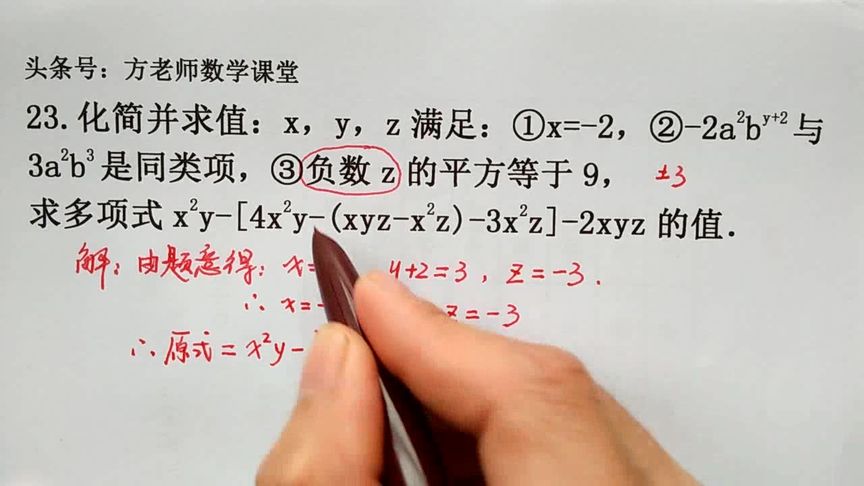 头条号：方老师数学课堂
23.化简并求值：x，y，z 满足：①x=-2，②-2a²bʸ⁺²与
3a²b³是同类项，③负数 z 的平方等于 9， ±3
求多项式 x²y-[4x²y-(xyz-x²z)-3x²z]-2xyz 的值．
解：由题意得：x= y+2=3，z=-3．
∴ x=- z=-3
∴原式=x²y-